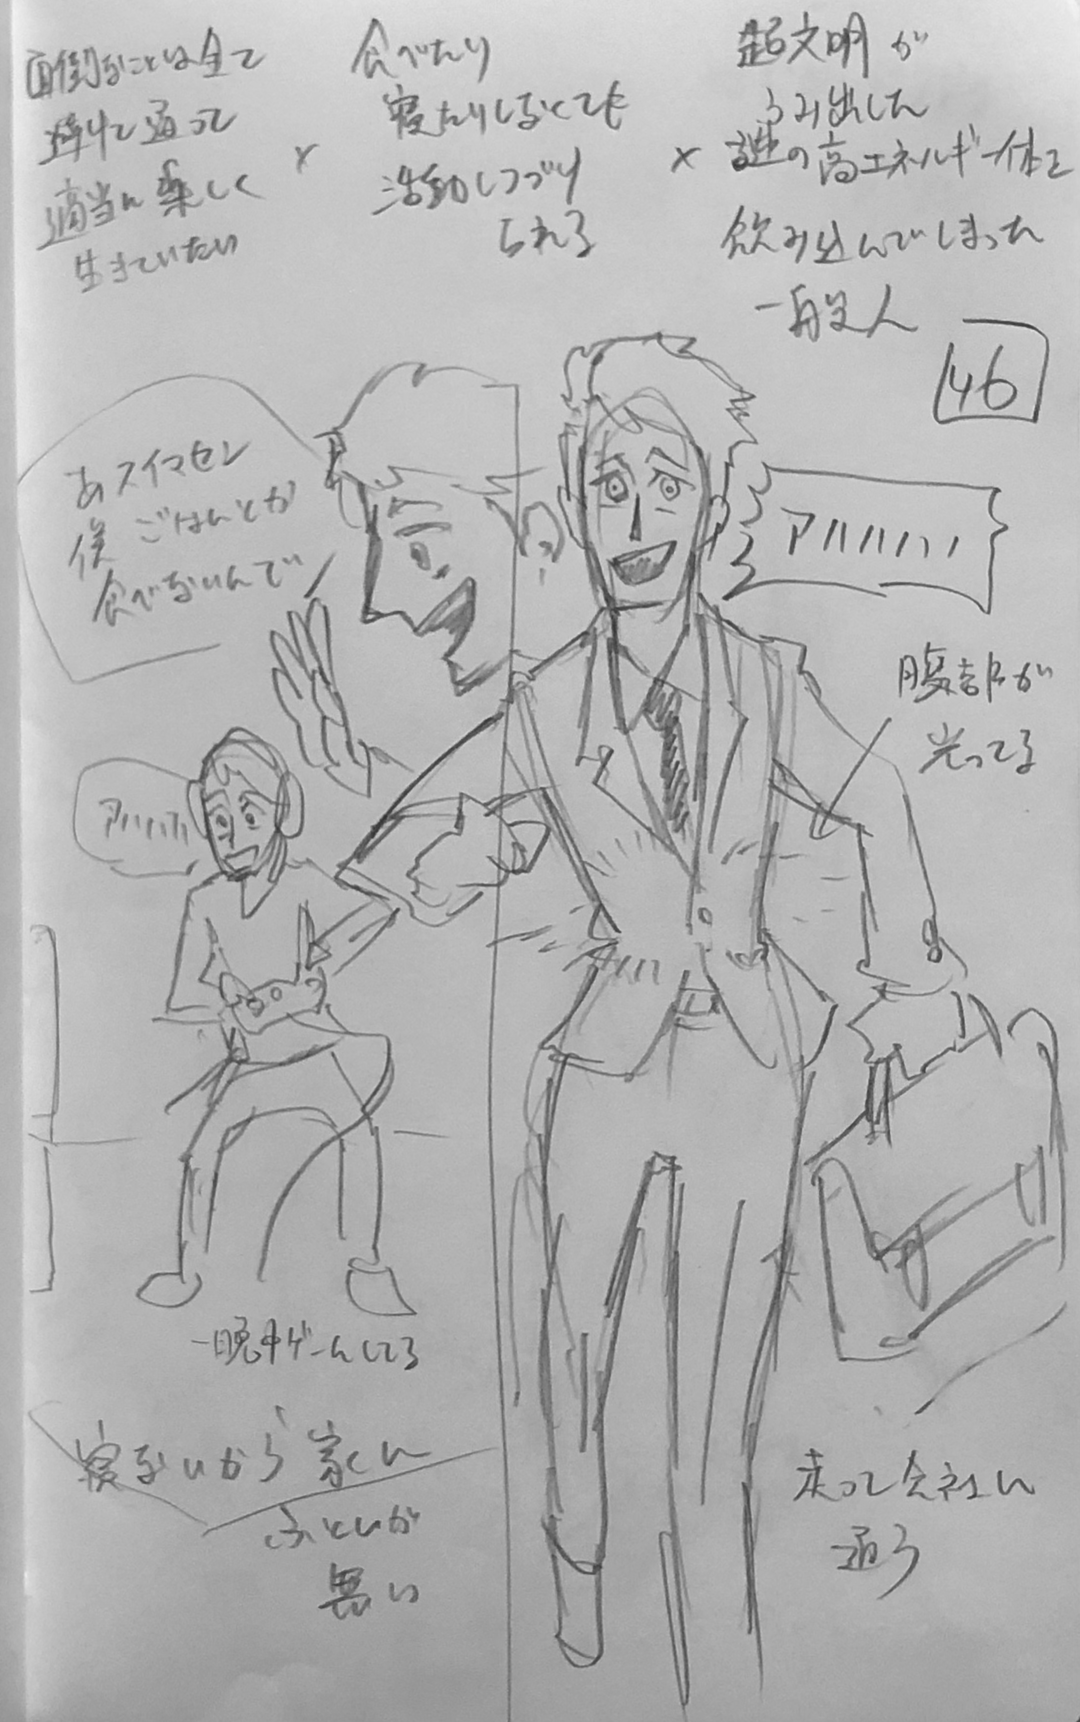 面倒なことは全て
避けて通って
適当に楽しく
生きていたい
×
食べたり
寝たりしなくても
活動しつづけ
られる
×
超文明が
うみ出した
謎の高エネルギー体を
飲み込んでしまった
一般人
46
あスイマセン
俺ごはんとか
食べないんで
アハハハハ
腹部が
光ってる
アハハハハ
一晩中ゲームしてる
寝ないから家に
ふとんが
無い
走って会社に
通う